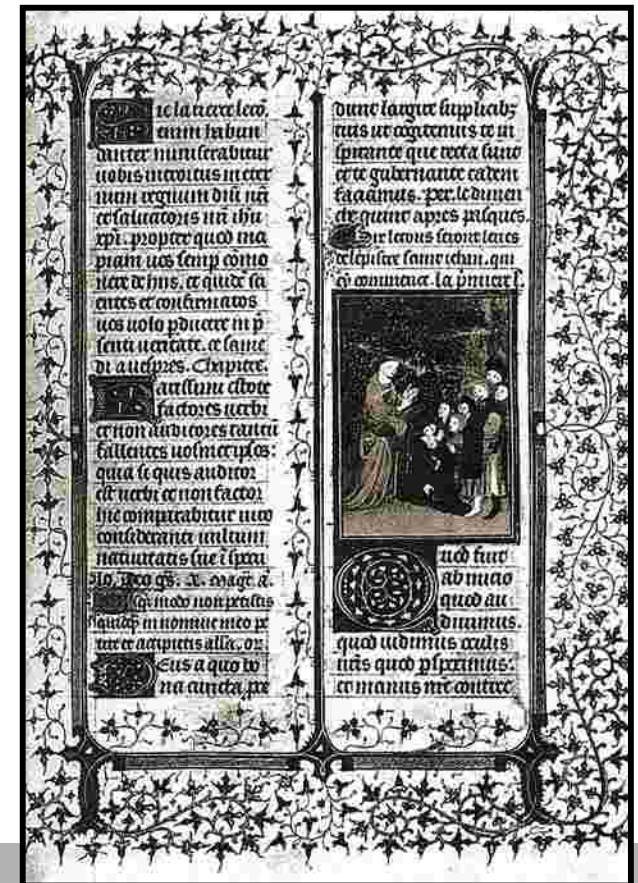 Sic la tierce leco.
enim habun
danter ministrabitur
uobis introitus in eter
num regnum dni nri
et saluatoris nri ihu
xpi. propter quod inci
piam uos semp cōmo
nere de his. et quidē sci
entes et confirmatos
uos uolo pducere in p
senti ueritate. ce same
di a uespres. Chapitre.
arissimi estote
factores uerbi
et non auditores tantū
fallentes uosmetipsos:
quia si quis auditor
est uerbi et non factor
hic comparabitur uiro
consideranti uultum
natiuitatis sue ī specu
lo. Deo gs. magt a.
Usq modo non petistis
quidq in nomine meo pe
tite et accipietis alla. or
Deus a quo bo
na cuncta pro
dunt largire supplicibz
tuis ut cogitemus te in
spirante que recta sunt
et te gubernante eadem
faciamus. Per. le dimen
che quint apres pasques.
les lecons seront leues
de lepistre saint iehan. qui
comence. la pmiere l.
Quod fuit
ab inicio
quod au
diuimus.
quod uidimus oculis
nris quod pspeximus:
et manus nre contrec